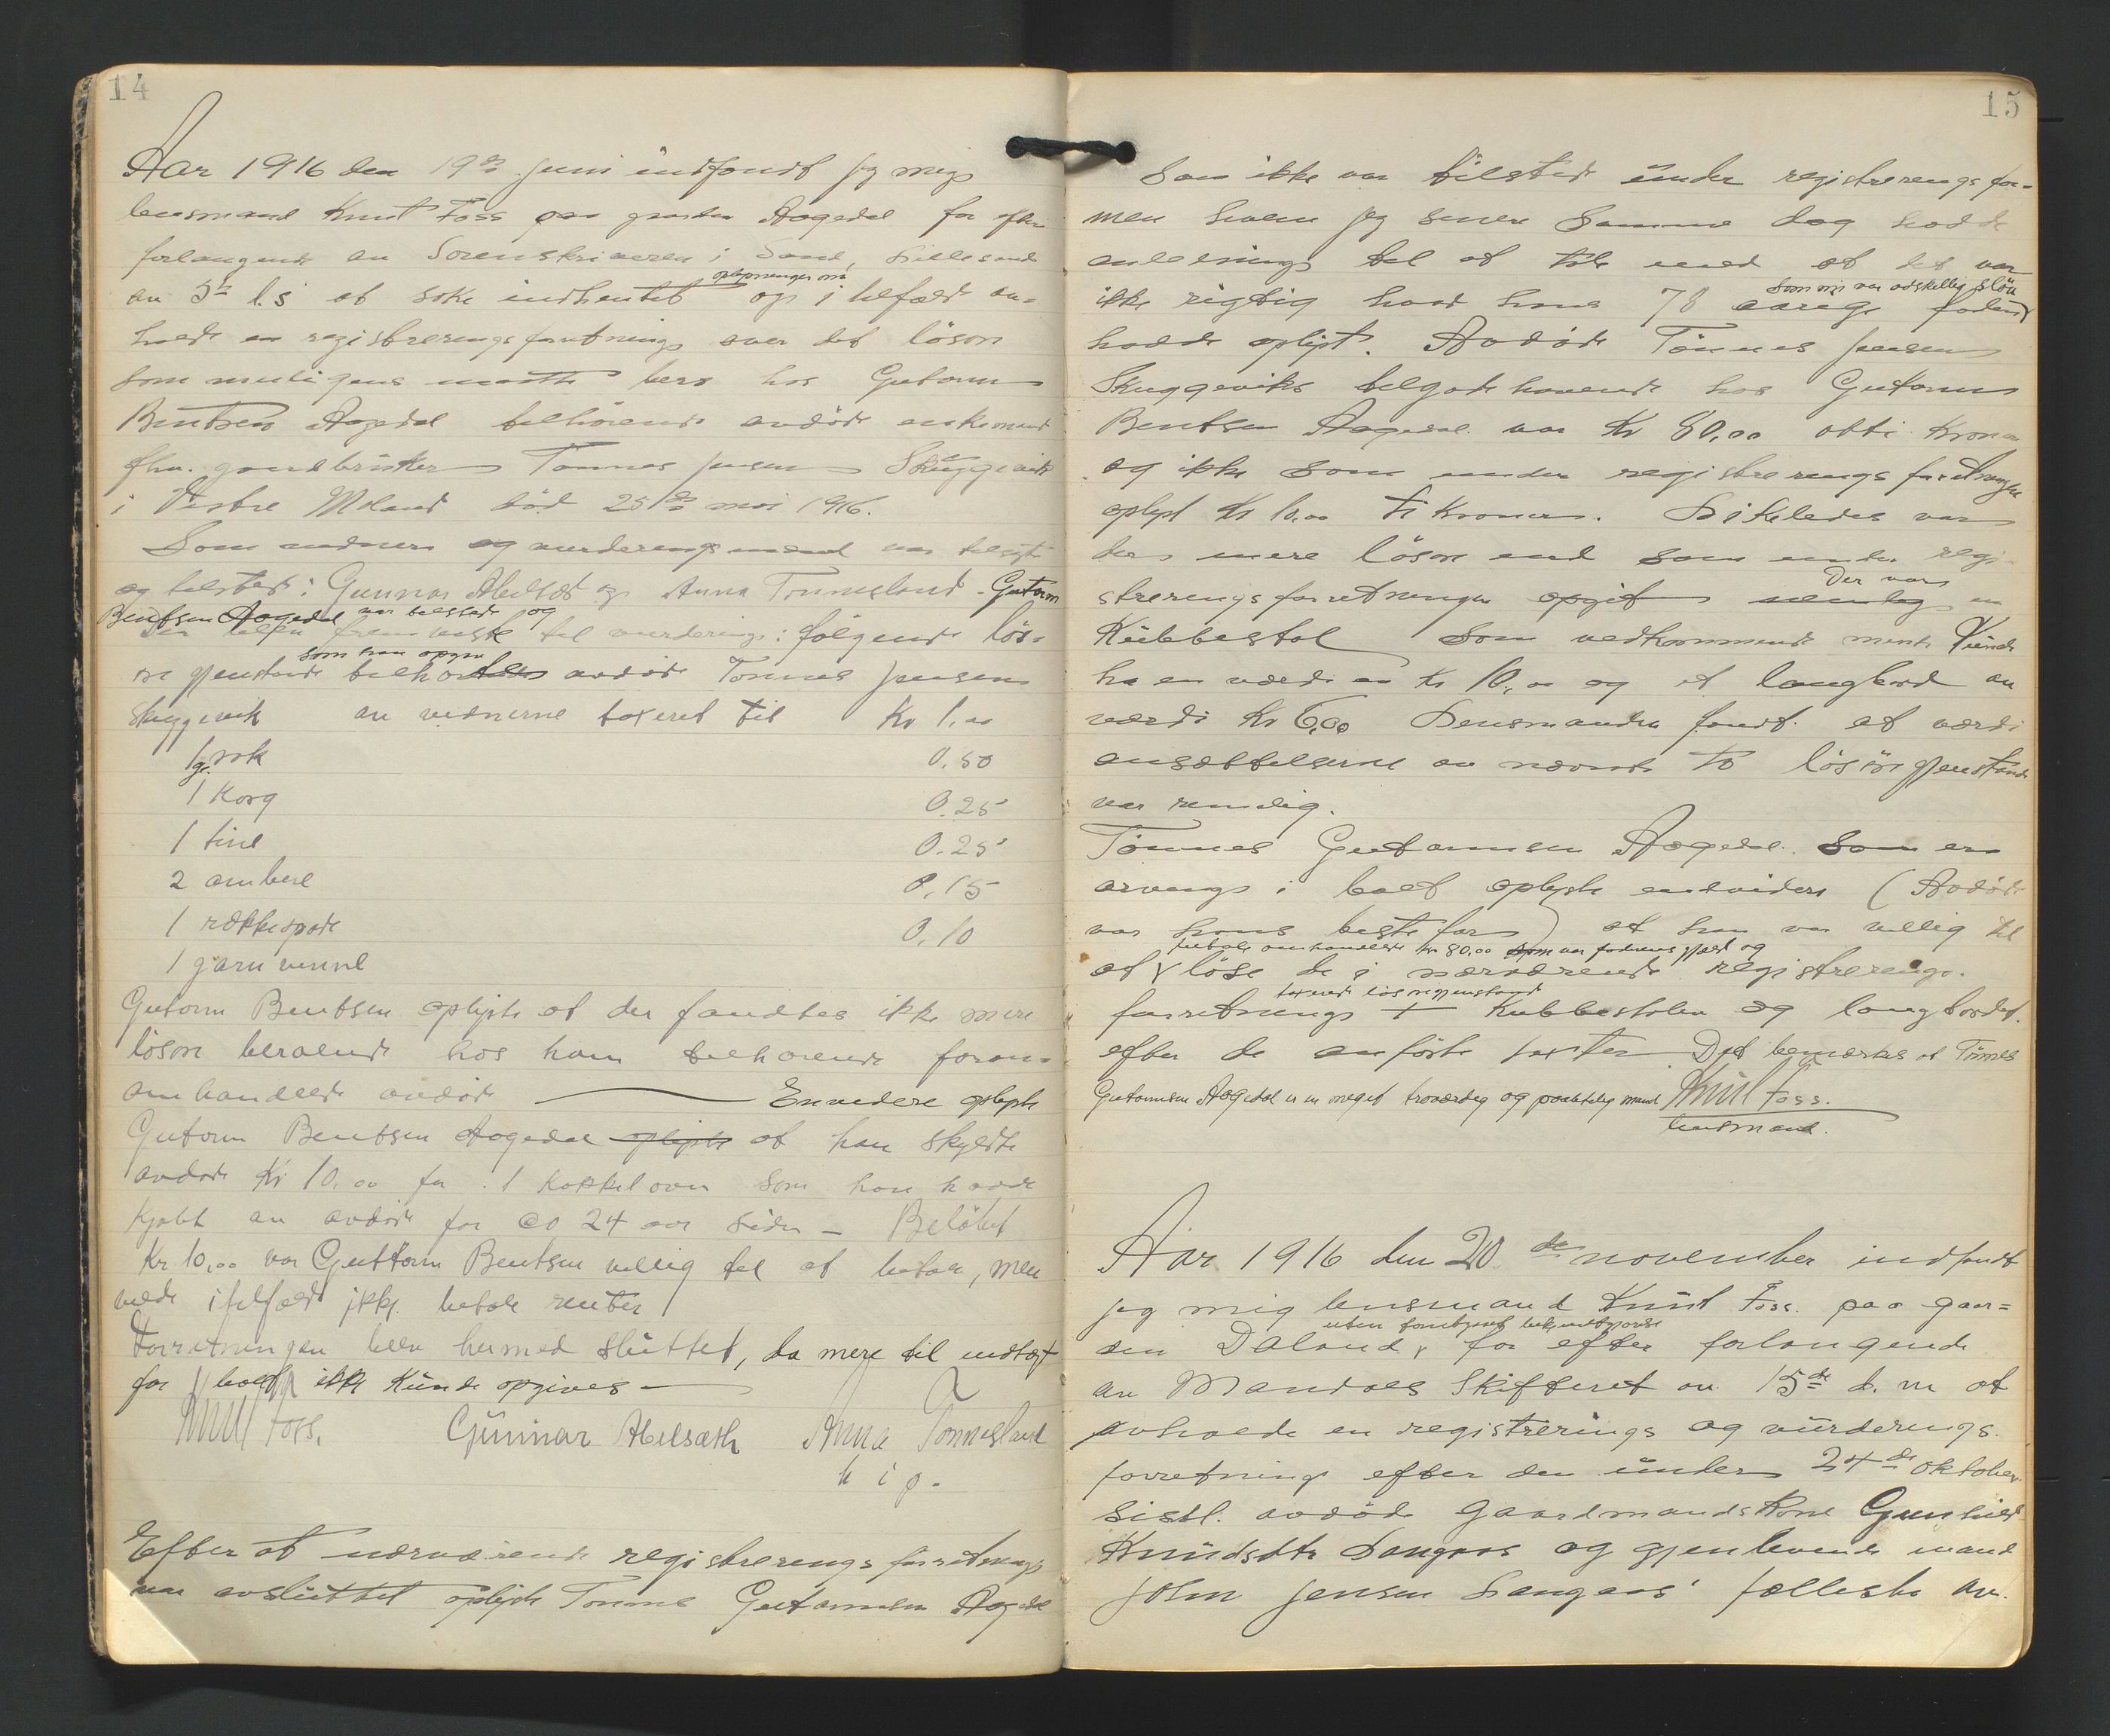 14
Aar 1916 den 19de juni indfandt jeg mig
lensmand Knut Foss paa gaarden Aagedal for efter
forlangende av Sorenskriveren i Sand, Lillesand
oplysninger om
av 5te l.s at søke indhentet og i tilfælde av-
holde en registrerings forretning over det løsøre
som muligens maatte bero hos Gutorm
Bentsen Aagedal tilhørende avdøde enkemand
fhv. gaardbruker Tønnes Jensen Skuggevik
i Vestre Moland død 25de mai 1916.
Som vidner og vurderingsmænd var tilsagt
og tilstede: Gunnar Abelsæt og Anna Tønnesland. Gutorm
Bentsen Aagedal var tilstede og
fremviste til vurdering: følgende løs-
som han opgav
øre gjenstande tilhørte avdøde Tønnes Jensen
Skuggevik av vidnerne taxeret til Kr 1,00
1 gr. rok 0,50
1 Korg 0,25
1 tine 0,25
2 ambere 0,15
1 rækkespade 0,10
1 garn vinne
Gutorm Bentsen oplyste at der fandtes ikke mere
løsøre beroende hos ham tilhørende foran-
omhandlede avdøde Envidere oplyste
Gutorm Bentsen Aagedal oplyste at han skyldte
avdøde Kr 10,00 for 1 kakkelovn som han hadde
kjøbt av avdøde for ca 24 aar siden - Beløbet
Kr 10,00 var Guttorm Bentsen villig til at betale, men
vilde i tilfælde ikke betale renter
Forretningen blev hermed sluttet, da mere til indtægt
for boet ikke kunde opgives
Knut Foss. Gunnar Abelsæth Anna Tønnesland
h i p.
Efter at nærværende registrerings forretning
var avsluttet oplyste Tønnes Gutormsen Aagedal
15
Som ikke var tilstede under registrerings for-
men hvem jeg senere samme dag hadde
anledning til at tale med at det var
som nu var adskillig sløv
ikke rigtig hvad hans 78 aarige fader
hadde oplyst. Avdøde Tønnes Jensen
Skuggeviks tilgodehavende hos Gutorm
Bentsen Aagedal var Kr 80,00 otti Kroner
og ikke som under registrerings forretningen
oplyst Kr 10,00 ti Kroner. Likeledes var
der mere løsøre end som under regi-
Der var
strerings forretningen opgit nemlig en
Kubbestol som vedkommende mente kunde
ha en værdi av Kr 10,00 og et langbord av
værdi Kr 6,00 Lensmanden fandt at værdi
ansættelserne av nævnte to løsøre gjenstande
var rimelig.
Tønnes Gutormsen Aagedal som er
arving i boet oplyste endvidere (Avdøde
var hans bestefar) at han var villig til
betale omhandlede kr 80,00 som var faderens gjæld og
at løse de i nærværende registrerings.
taxerede løsøregjenstande
forretning + Kubbestolen og langbordet.
efter de anførte taxter Det bemærkes at Tønnes
Gutormsen Aagedal er en meget troværdig og paalitelig mand Knut Foss.
lensmand.
Aar 1916 den 20de november indfandt
jeg mig lensmand Knut Foss. paa gaar=
uten foregaaende bekjendtgjørelse
den Daland, for efter forlangende
av Mandals Skifteret av 15de d. m at
avholde en registrerings og vurderings.
forretning efter den under 24de oktober
sistl. avdøde gaardmandskone Gunhild
Knudsdtr Langaas og gjenlevende mand
John Jensen Langaas' fælles bo av.